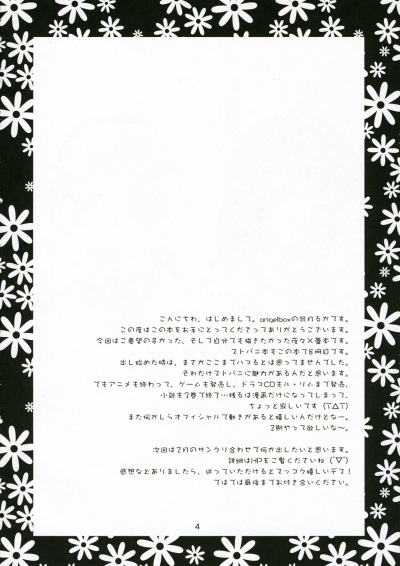 こんにちわ、はじめまして。angelboxの羽月るかです。
この度はこの本をお手にとってくださってありがとうございます。
今回はご要望の多かった、そして自分でも描きたかった夜々×蕾本です。
ストパニ本もこの本で8冊目です。
出し始めた時は、まさかここまでハマるとは思ってませんでした。
それだけストパニに魅力があるんだと思います。
でもアニメも終わって、ゲームも発売し、ドラマCDもル・リムまで発売、
小説も3巻で終了…残るは漫画だけになってしまって、
ちょっと寂しいです (T△T)
また何かしらオフィシャルで動きがあると嬉しい人だけどなー。
2期やって欲しいな~。
次回は2月のサンクリ合わせで何か出したいと思います。
詳細はHPをご覧くださいね (´▽`)
感想などありましたら、送っていただけるとスッゴク嬉しいデス!
ではでは最後までお付き合いください。
4